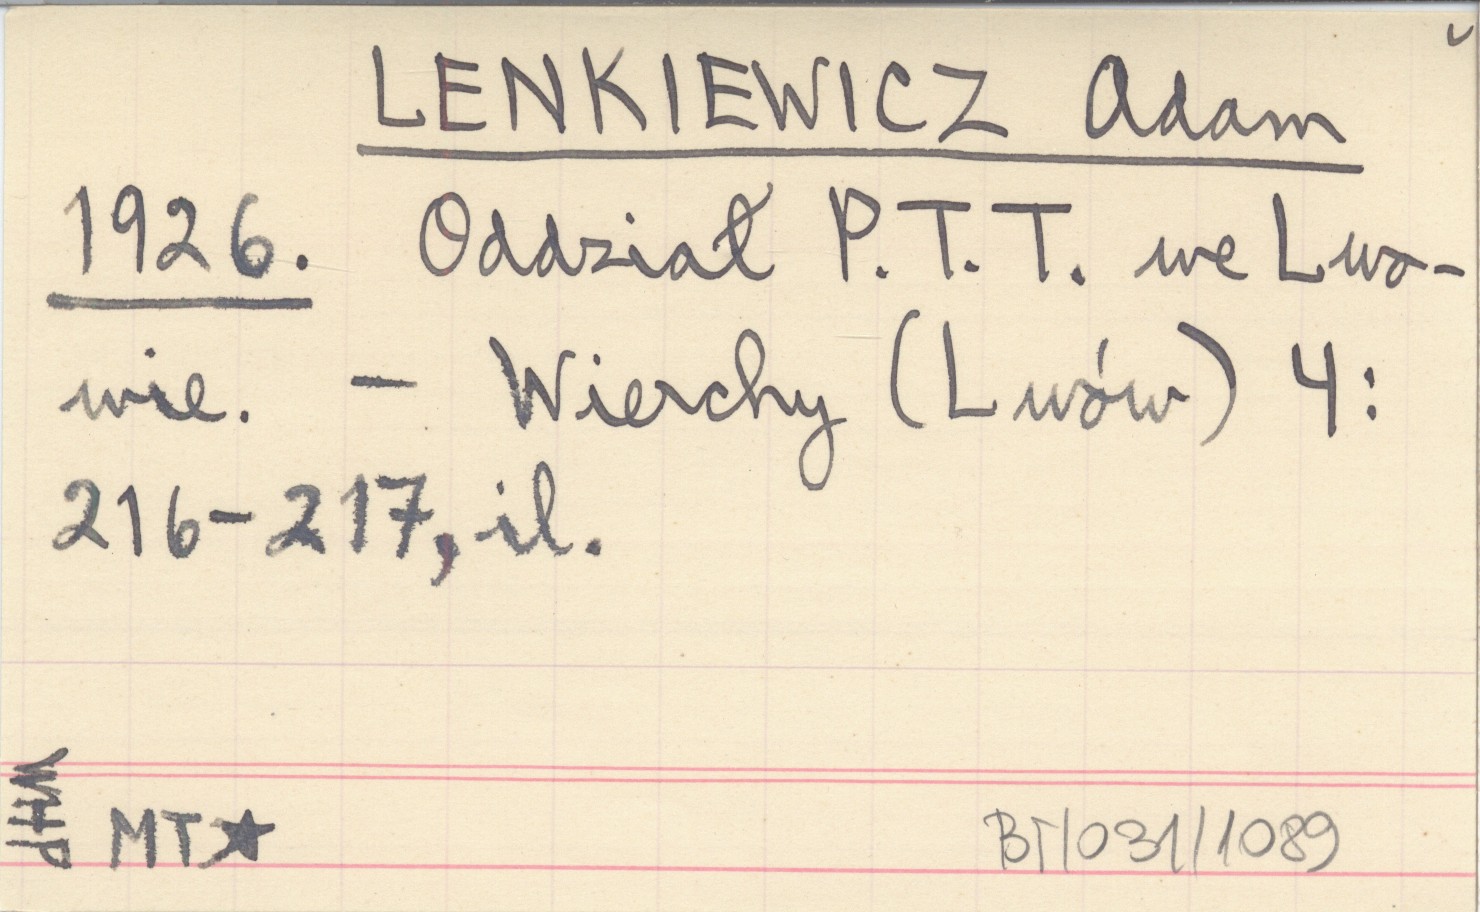 LENKIEWICZ Adam
1926. Oddział P.T.T. we Lwo-
wie. – Wierchy (Lwów) 4:
216–217, il.
WHP
MT★
BT/031/1089